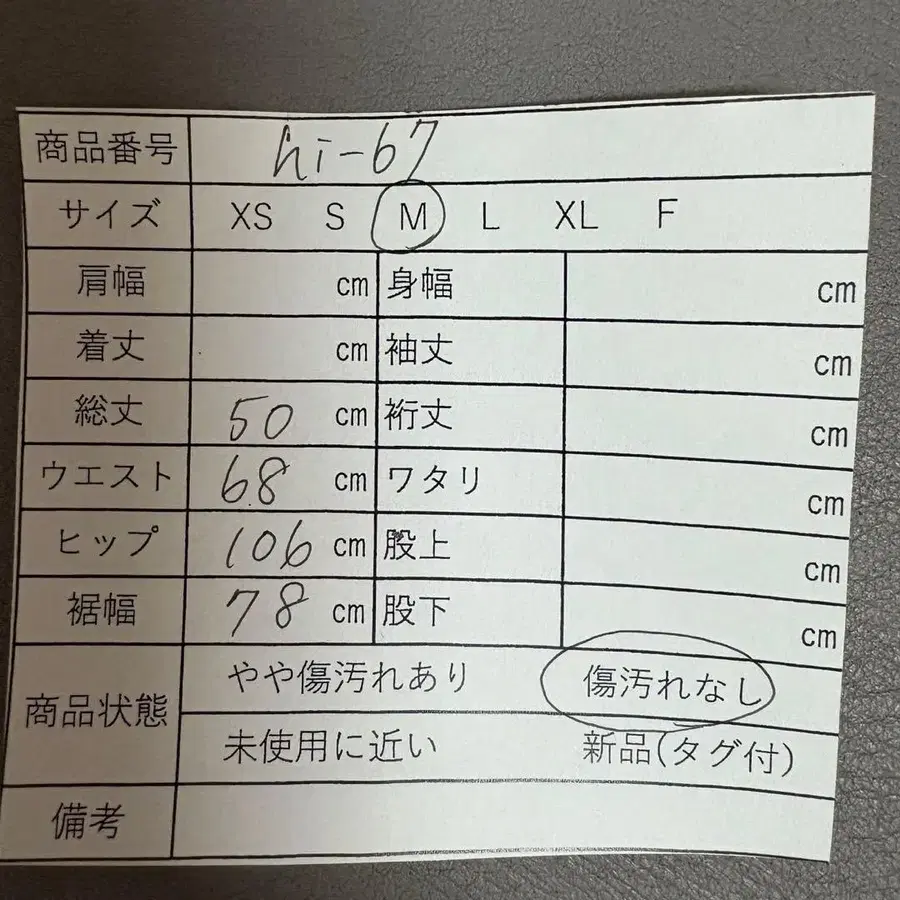 商品番号 hi-67
サイズ XS S M L XL F
肩幅 cm 身幅 cm
着丈 cm 袖丈 cm
総丈 50 cm 裄丈 cm
ウエスト 68 cm ワタリ cm
ヒップ 106 cm 股上 cm
裾幅 78 cm 股下 cm
商品状態 やや傷汚れあり 傷汚れなし
未使用に近い 新品(タグ付)
備考